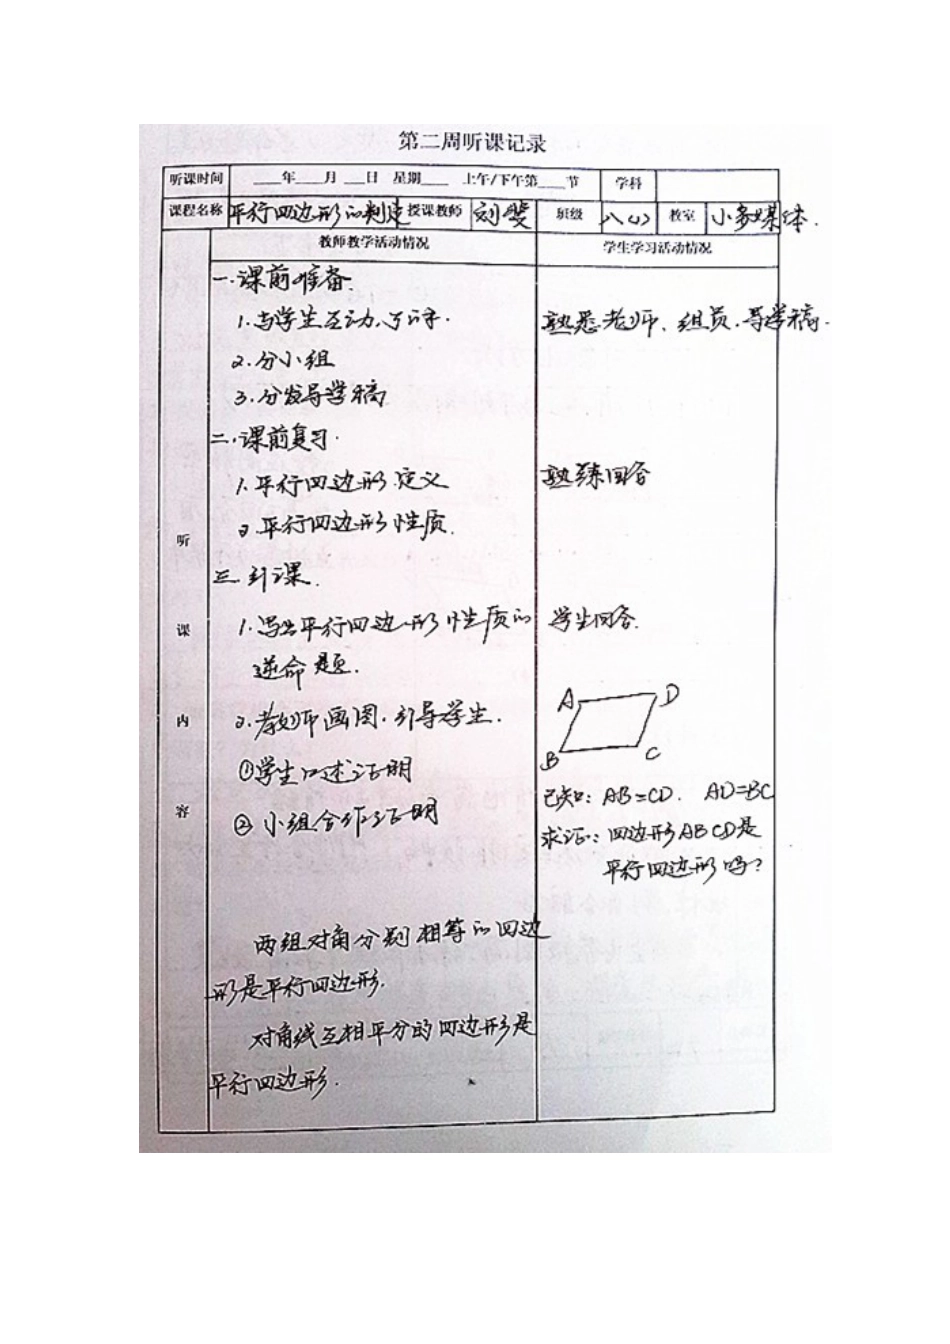 第二周听课记录
听课时间 ___年___月___日 星期___ 上午/下午第___节 学科
课程名称 平行四边形的判定 授课教师 刘斐 班级 八(4) 教室 小多媒体.
教师教学活动情况 学生学习活动情况
听课内容
一.课前准备.
1.与学生互动、 熟悉老师、组员、导学稿.
2.分小组
3.分发导学稿
二.课前复习.
1.平行四边形定义 熟练回答
2.平行四边形性质.
三.引课.
1.写出平行四边形性质的 学生回答.
逆命题.
2.教师画图.引导学生.
A D
B C
①学生口述证明
已知: AB=CD. AD=BC
②小组合作证明
求证: 四边形ABCD是
平行四边形吗?
两组对角分别相等的四边
形是平行四边形.
对角线互相平分的四边形是
平行四边形.